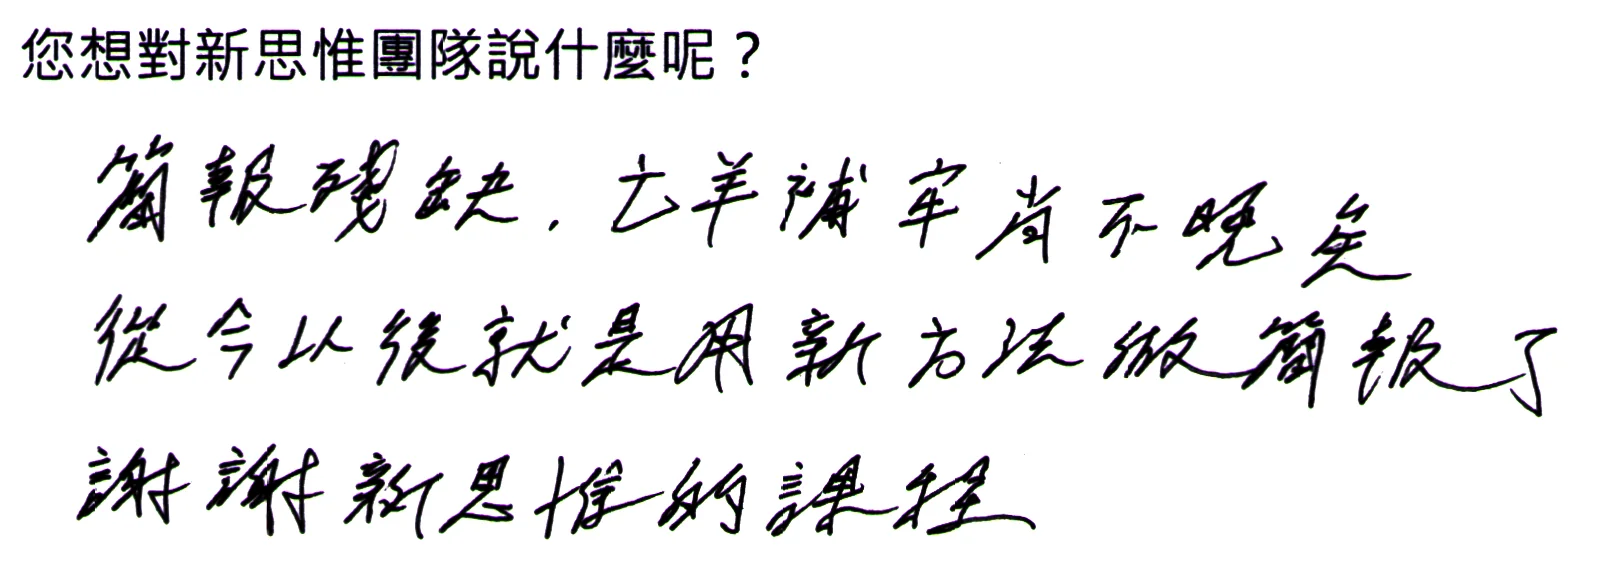 您想對新思惟團隊說什麼呢？
簡報殘缺，亡羊補牢尚不晚矣
從今以後就是用新方法做簡報了
謝謝新思惟的課程